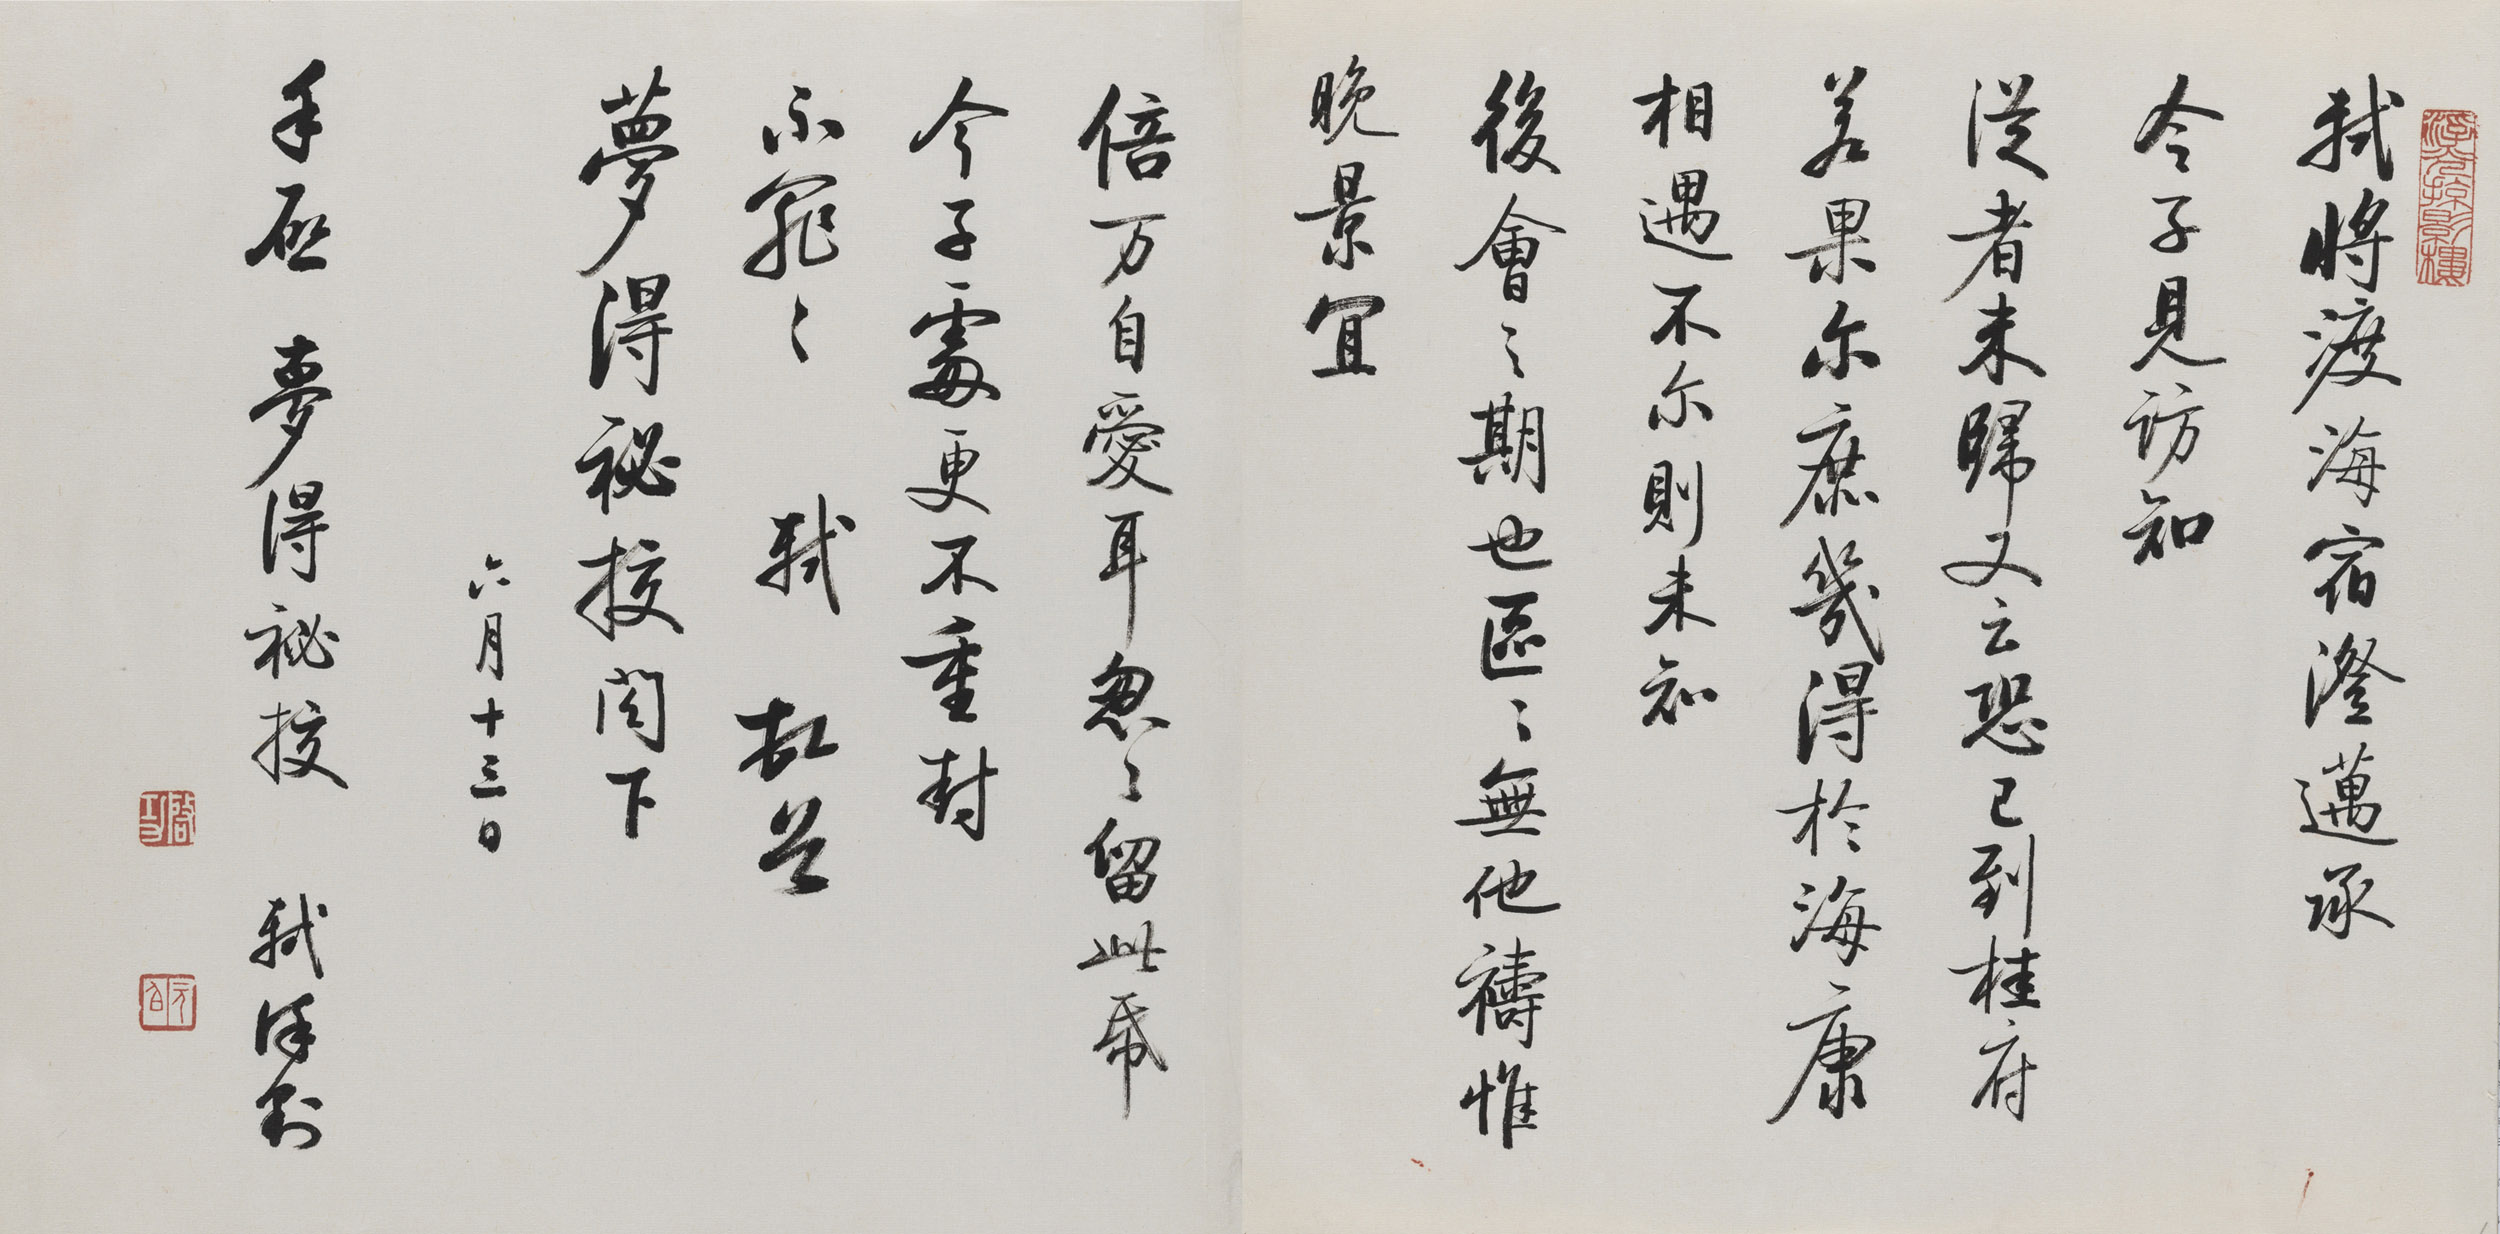 軾將渡海宿澄邁承
令子見訪知
從者未歸又云恐已到桂府
若果尔庶幾得於海康
相遇不尔則未知
後會之期也區々無他禱惟
晚景宜
倍万自愛耳忽々留此帋
令子處更不重封
不罪々 軾 頓首
夢得祕校閣下
六月十三日
手啟 夢得祕校 軾謹封
啟功
元白